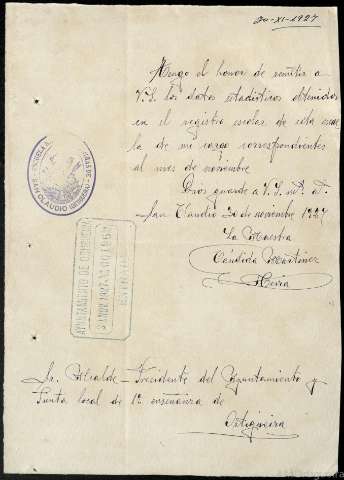 30-XI-1927
Tengo el honor de remitir a
V.S. los datos estadísticos obtenidos
en el registro escolar de esta escue
la de mi cargo correspondientes
al mes de noviembre
Dios guarde a V.S. ms. as.
San Claudio 30 de noviembre 1927
La Maestra
Cándida Martínez
SAN CLAUDIO
AYUNTAMIENTO DE
ENTRADA
Sr. Alcalde-Presidente del Ayuntamiento y
Junta local de 1ª enseñanza de
Ortigueira